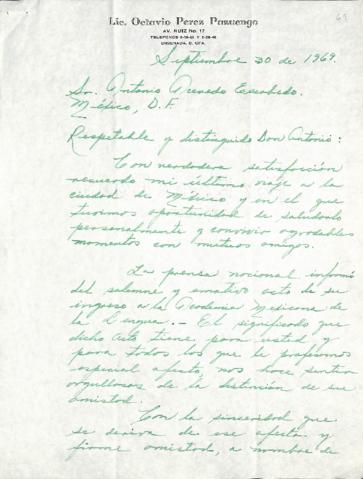 Lic. Octavio Perez Pazuengo
AV. RUIZ No. 17
ENSENADA, B. CFA.
Septiembre 30 de 1969.
Sr. Antonio Acevedo Escobedo.
México, D.F.
Respetable y distinguido Don Antonio:
Con verdadera satisfacción
recuerdo mi último viaje a la
ciudad de México y en el que
tuvimos oportunidad de saludarlo
personalmente y convivir agradables
momentos con mutuos amigos.
La prensa nacional informó
del solemne y emotivo acto de su
ingreso a la Academia Mexicana de
la Lengua.- El significado que
dicho acto tiene, para usted y
para todos los que le profesamos
especial afecto, nos hace sentir
orgullosos de la distinción de su
amistad.
Con la sinceridad que
se deriva de ese afecto y
firme amistad, a nombre de